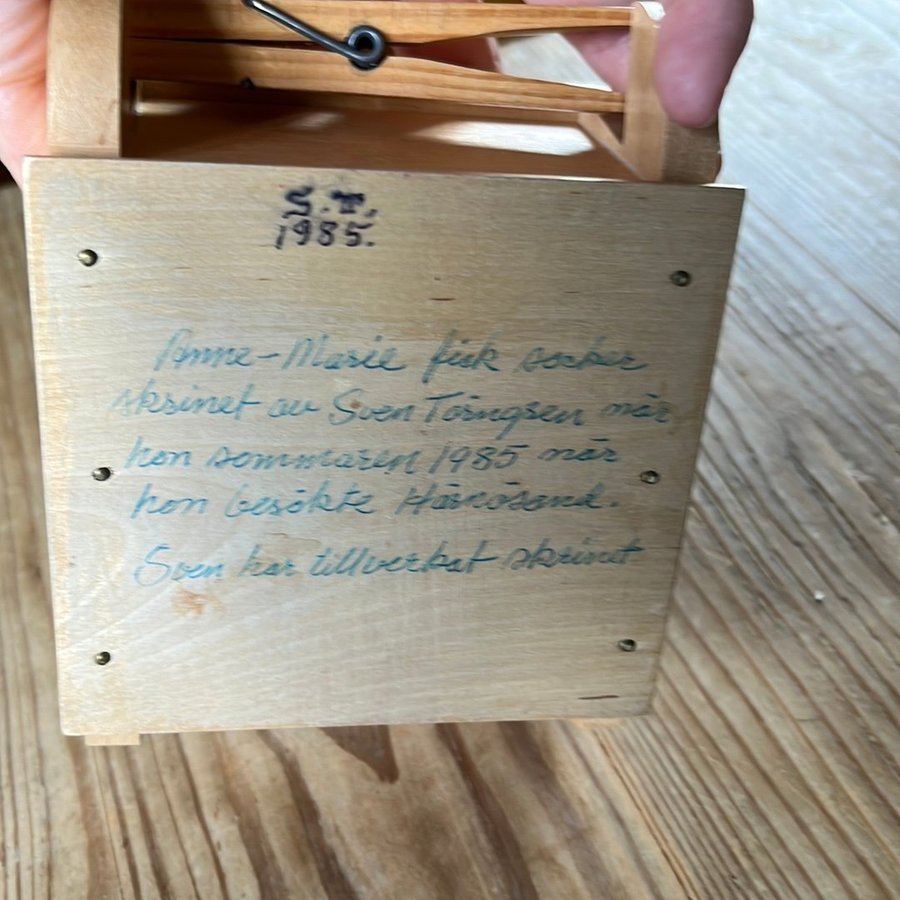 S.T.
1985.
Anne-Marie fick socker
skrinet av Sven Törngren när
hon sommaren 1985 när
hon besökte Härnösand.
Sven har tillverkat skrinet